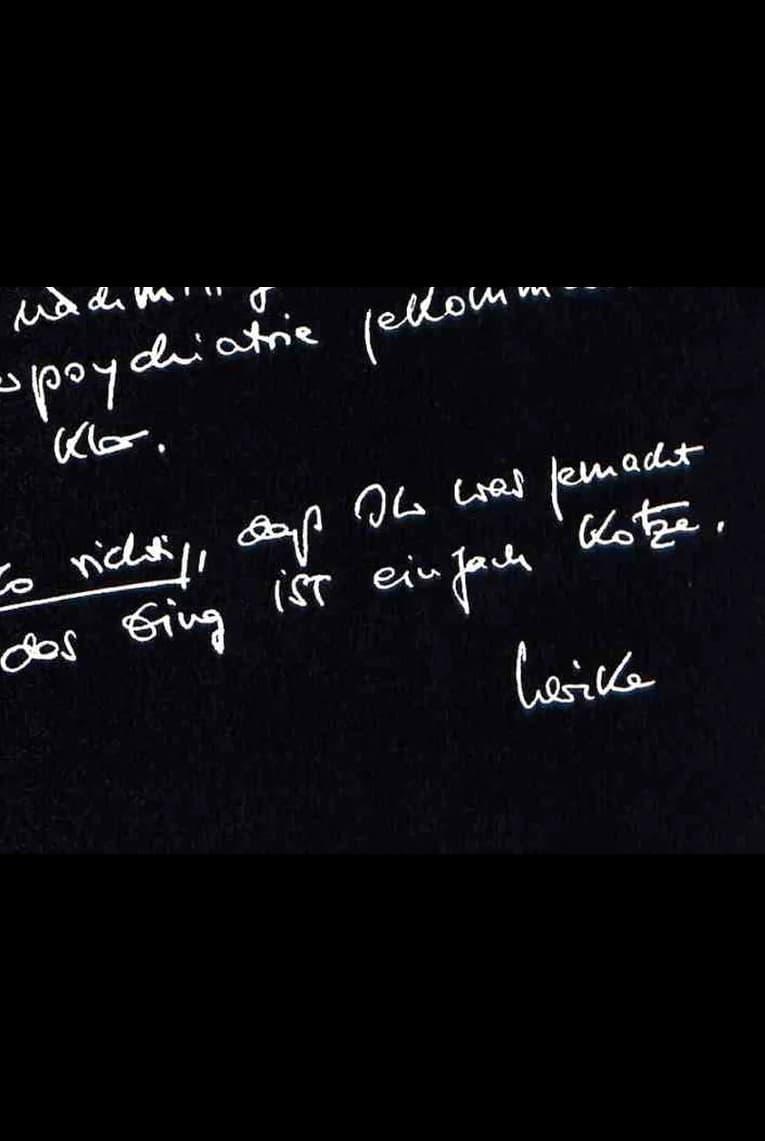 psychiatrie gekomm
Klar.
so richtig, daß Ihr was gemacht
das Ding ist einfach Kotze.
Ulrike